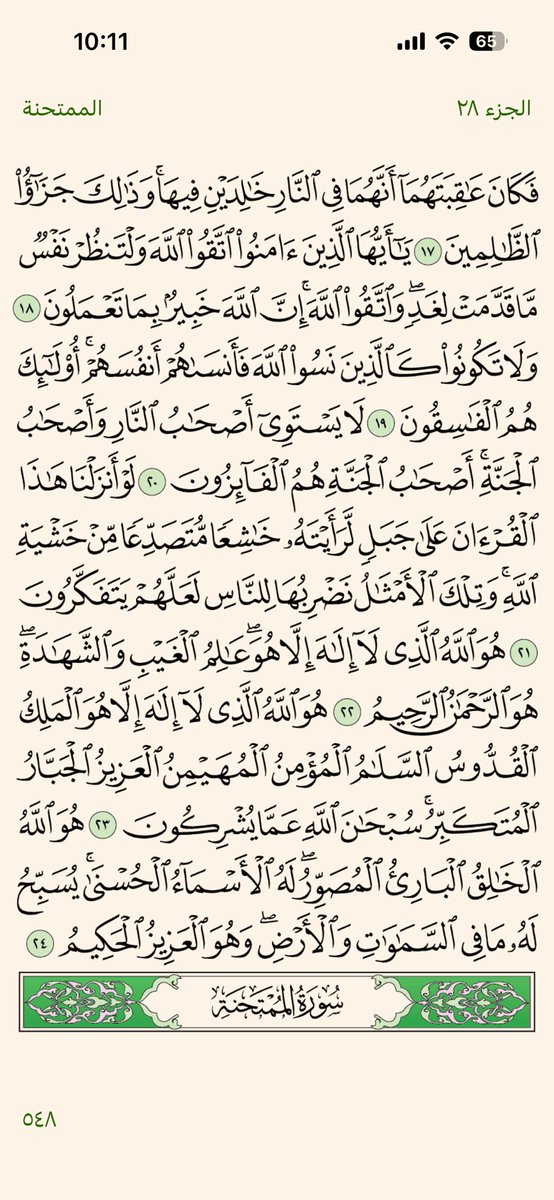 10:11
65
الجزء ٢٨
الممتحنة
فَكَانَ عَٰقِبَتَهُمَآ أَنَّهُمَا فِى ٱلنَّارِ خَٰلِدَيْنِ فِيهَا ۚ وَذَٰلِكَ جَزَٰٓؤُا۟
ٱلظَّٰلِمِينَ ١٧ يَٰٓأَيُّهَا ٱلَّذِينَ ءَامَنُوا۟ ٱتَّقُوا۟ ٱللَّهَ وَلْتَنظُرْ نَفْسٌ
مَّا قَدَّمَتْ لِغَدٍ ۖ وَٱتَّقُوا۟ ٱللَّهَ ۚ إِنَّ ٱللَّهَ خَبِيرٌۢ بِمَا تَعْمَلُونَ ١٨
وَلَا تَكُونُوا۟ كَٱلَّذِينَ نَسُوا۟ ٱللَّهَ فَأَنسَىٰهُمْ أَنفُسَهُمْ ۚ أُو۟لَٰٓئِكَ
هُمُ ٱلْفَٰسِقُونَ ١٩ لَا يَسْتَوِىٓ أَصْحَٰبُ ٱلنَّارِ وَأَصْحَٰبُ
ٱلْجَنَّةِ ۚ أَصْحَٰبُ ٱلْجَنَّةِ هُمُ ٱلْفَآئِزُونَ ٢٠ لَوْ أَنزَلْنَا هَٰذَا
ٱلْقُرْءَانَ عَلَىٰ جَبَلٍ لَّرَأَيْتَهُۥ خَٰشِعًا مُّتَصَدِّعًا مِّنْ خَشْيَةِ
ٱللَّهِ ۚ وَتِلْكَ ٱلْأَمْثَٰلُ نَضْرِبُهَا لِلنَّاسِ لَعَلَّهُمْ يَتَفَكَّرُونَ
٢١ هُوَ ٱللَّهُ ٱلَّذِى لَآ إِلَٰهَ إِلَّا هُوَ ۖ عَٰلِمُ ٱلْغَيْبِ وَٱلشَّهَٰدَةِ ۖ
هُوَ ٱلرَّحْمَٰنُ ٱلرَّحِيمُ ٢٢ هُوَ ٱللَّهُ ٱلَّذِى لَآ إِلَٰهَ إِلَّا هُوَ ٱلْمَلِكُ
ٱلْقُدُّوسُ ٱلسَّلَٰمُ ٱلْمُؤْمِنُ ٱلْمُهَيْمِنُ ٱلْعَزِيزُ ٱلْجَبَّارُ
ٱلْمُتَكَبِّرُ ۚ سُبْحَٰنَ ٱللَّهِ عَمَّا يُشْرِكُونَ ٢٣ هُوَ ٱللَّهُ
ٱلْخَٰلِقُ ٱلْبَارِئُ ٱلْمُصَوِّرُ ۖ لَهُ ٱلْأَسْمَآءُ ٱلْحُسْنَىٰ ۚ يُسَبِّحُ
لَهُۥ مَا فِى ٱلسَّمَٰوَٰتِ وَٱلْأَرْضِ ۖ وَهُوَ ٱلْعَزِيزُ ٱلْحَكِيمُ ٢٤
سُورَةُ ٱلْمُمْتَحَنَةِ
٥٤٨